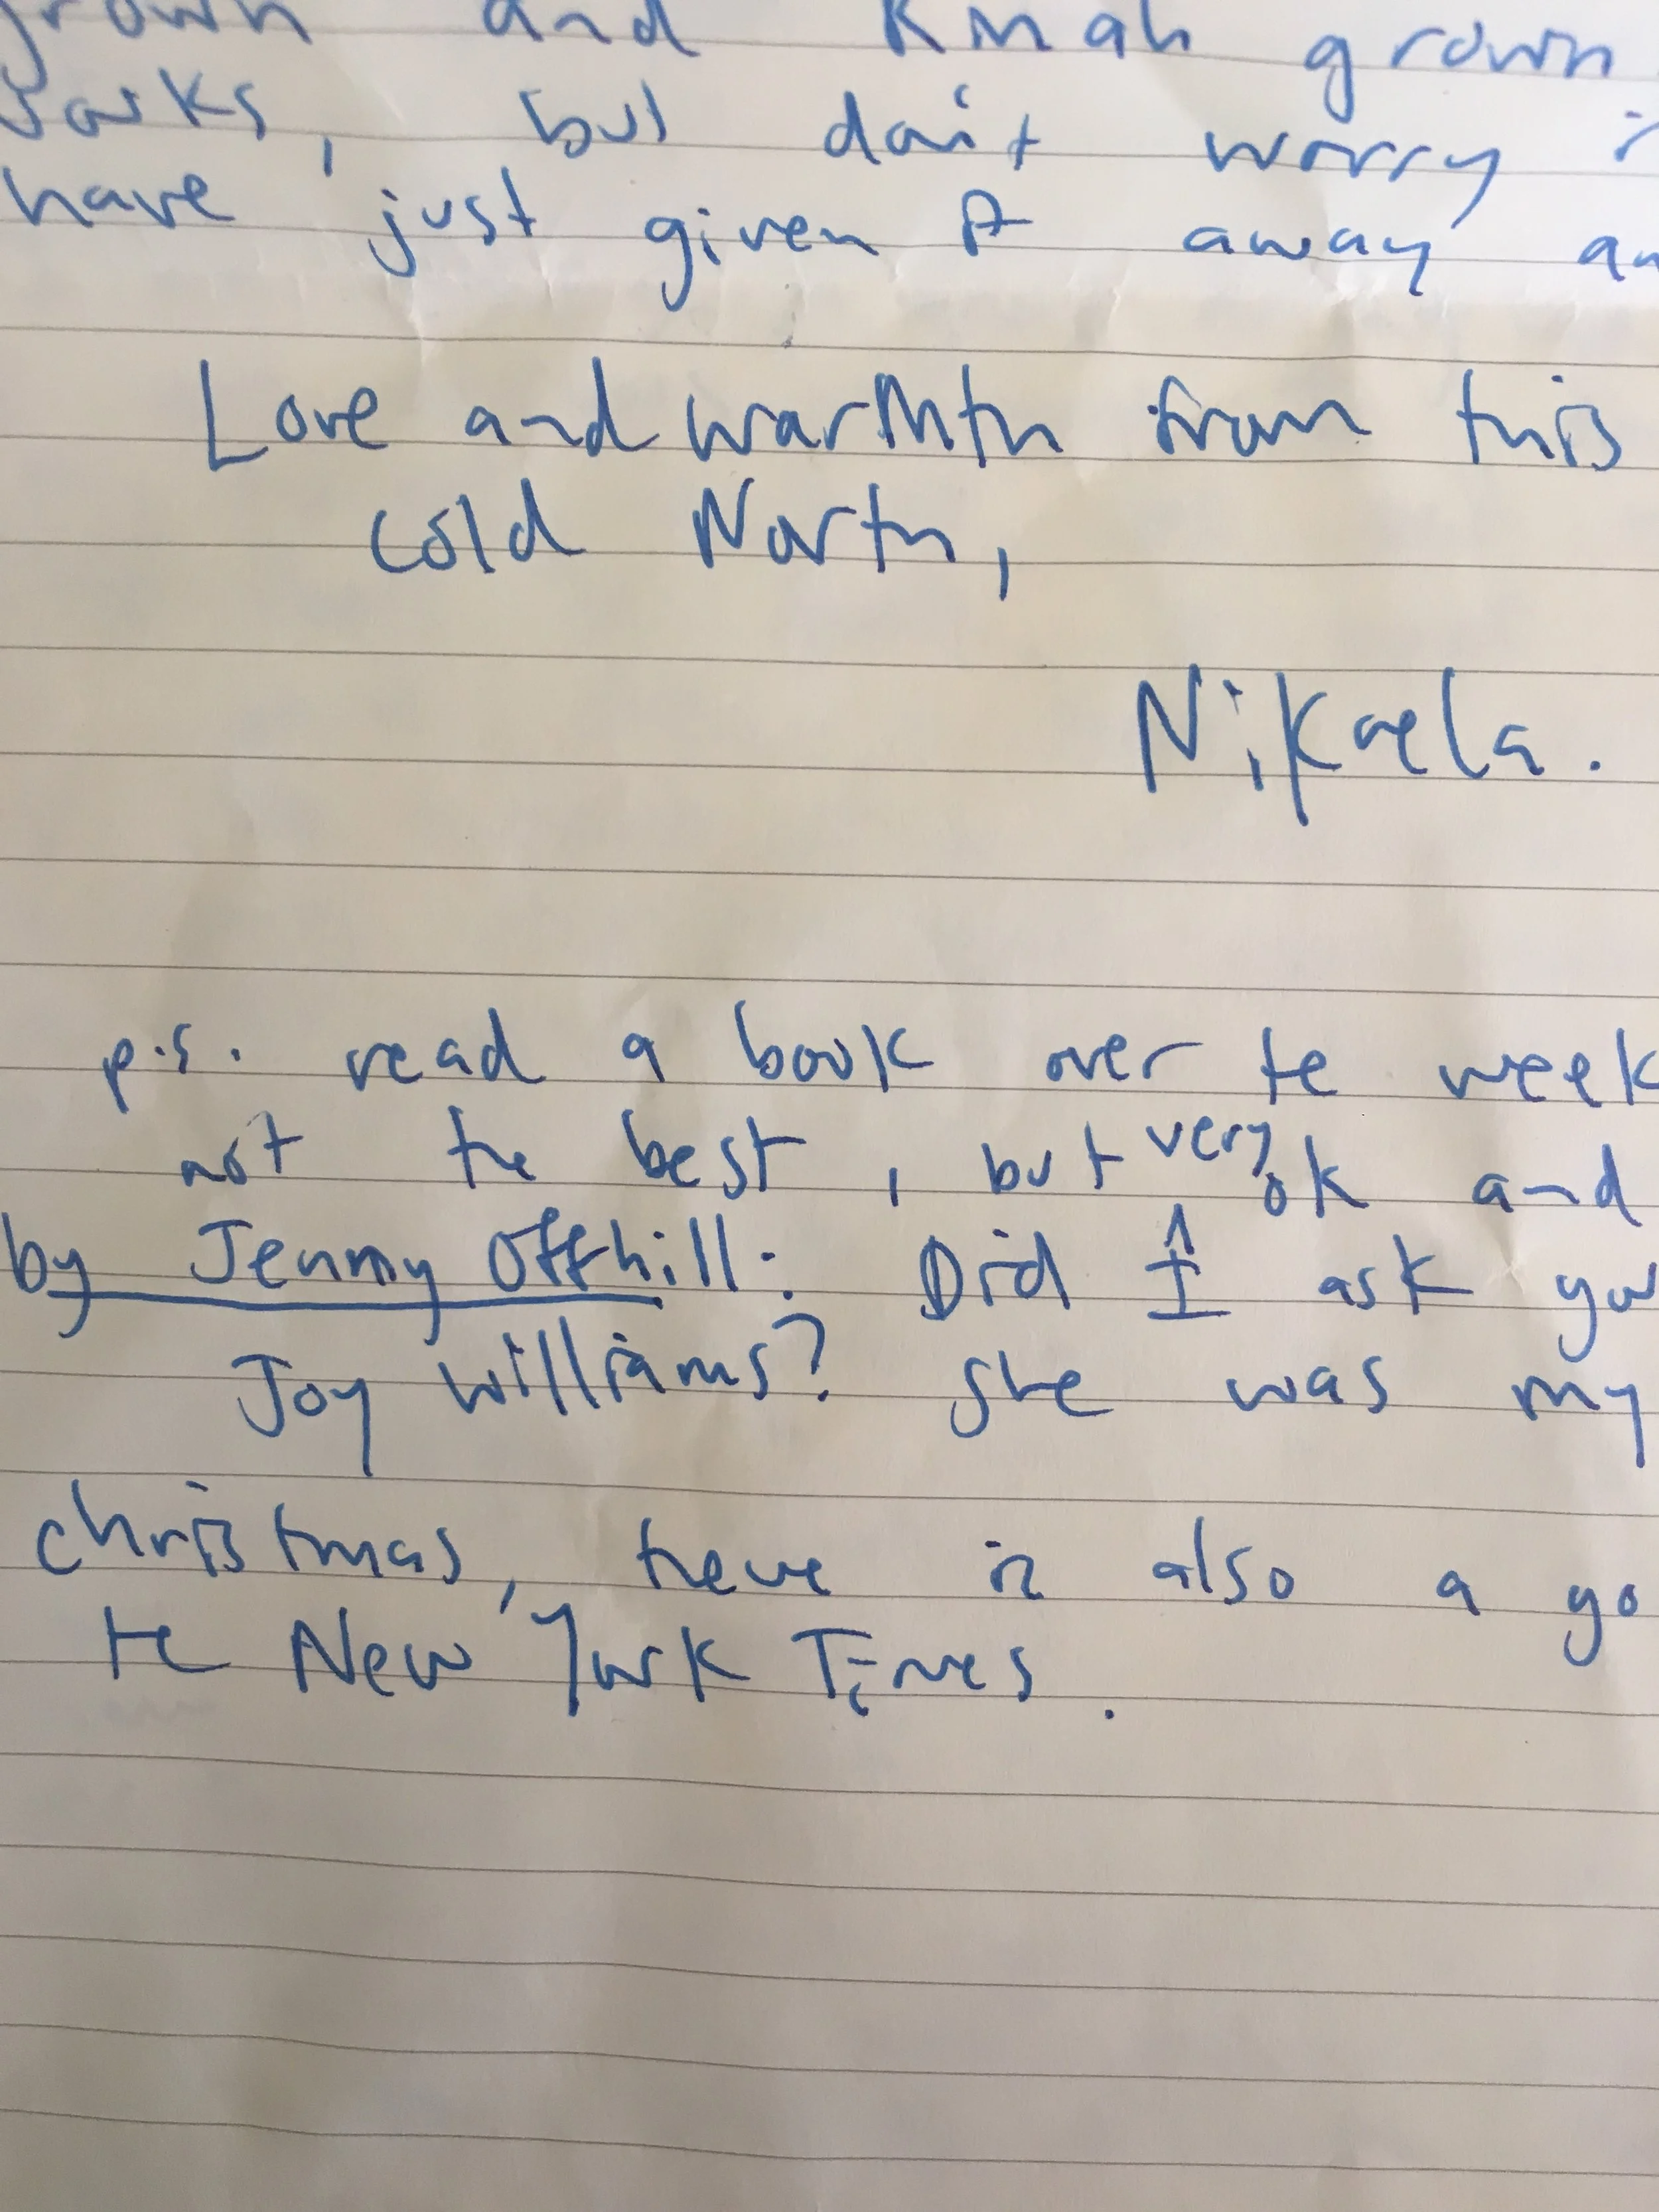 grown and Kmah grown
socks, but don't worry i
have just given it away an
Love and warmth from this
cold North,
Nikaela.
p.s. read a book over te week
not the best, but very ok and
by Jenny Offhill. Did I ask you
Joy Williams? She was my
christmas, there is also a go
te New York Times.